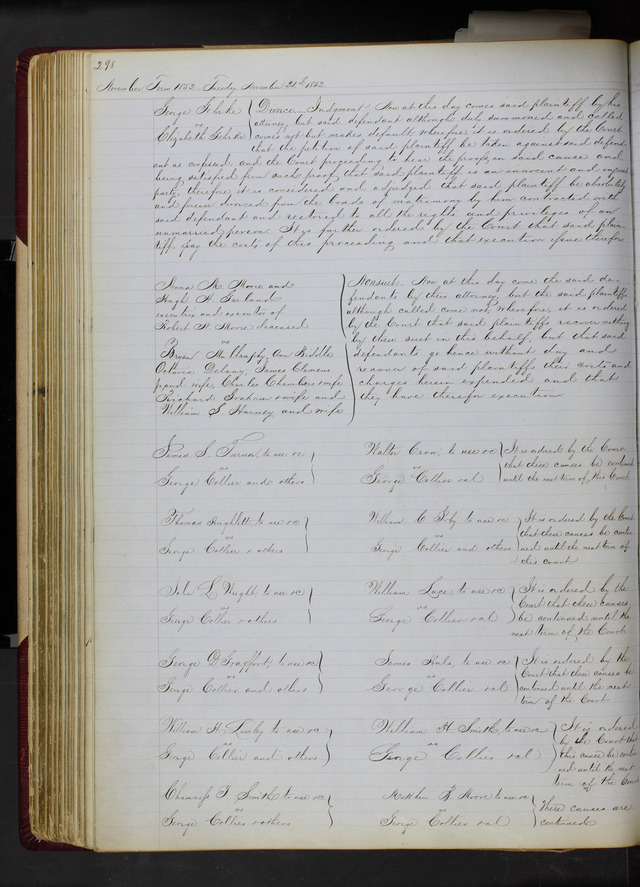 298
November Term 1852. Tuesday November 23d 1852
George Gehrke
vs
Elizabeth Gehrke
Divorce Judgment. Now at this day comes said plaintiff by his
attorney, but said defendant although duly summoned and called
comes not but makes default, wherefore it is ordered by the Court
that the petition of said plaintiff be taken against said defend
ant as confessed and the Court proceeding to hear the proofs in said cause and
being satisfied from such proof, that said plaintiff is an innocent and injured
party, therefore it is considered and adjudged that said plaintiff be absolutely
and forever divorced from the bonds of matrimony by him contracted with
said defendant and restored to all the rights and privileges of an
unmarried person. It is further ordered by the Court that said plain
tiff pay the costs of this proceeding and that execution issue therefor
Anna M. Moore and
Hugh H.
executrix and executor of
Robert H. Moore deceased
vs
Ann Biddle
Octavia Delany, James Clemens
jr and wife, Charles Chambers & wife
Richard Graham & wife and
William S Harney and wife
Nonsuit. Now at this day come the said de-
fendants by their attorney, but the said plaintiffs
although called come not, wherefore, it is ordered
by the Court that said plaintiffs recover nothing
by their suit in this behalf, but that said
defendants go hence without day and
recover of said plaintiffs their costs and
charges herein expended and that
they have therefor execution
James S. to use &c
vs
George Collier and others
Walter Crow, to use &c
vs
George Collier et al
It is ordered by the Court
that these causes be continued
until the next term of this Court
Thomas Hughlett to use &c
vs
George Collier & others
William C to use &c
vs
George Collier and others
It is ordered by the Court
that these causes be contin
ued until the next term of
this court
John L Wright, to use &c
vs
George Collier & others
William Luce, to use &c
vs
George Collier et al
It is ordered by the
Court that these causes
be continued until the
next term of the Court
George to use &c
vs
George Collier and others
James to use &c
vs
George Collier et al
It is ordered by the
Court that these causes be
continued until the next
term of the Court
William H. to use &c
vs
George Collier and others
William H. Smith, to use &c
vs
George Collier et al
It is ordered
by the Court that
this cause be contin
ued until the next
term of the Court
T. Smith to use &c
vs
George Collier & others
Matthew Moore to use &c
vs
George Collier et al
These causes are
continued